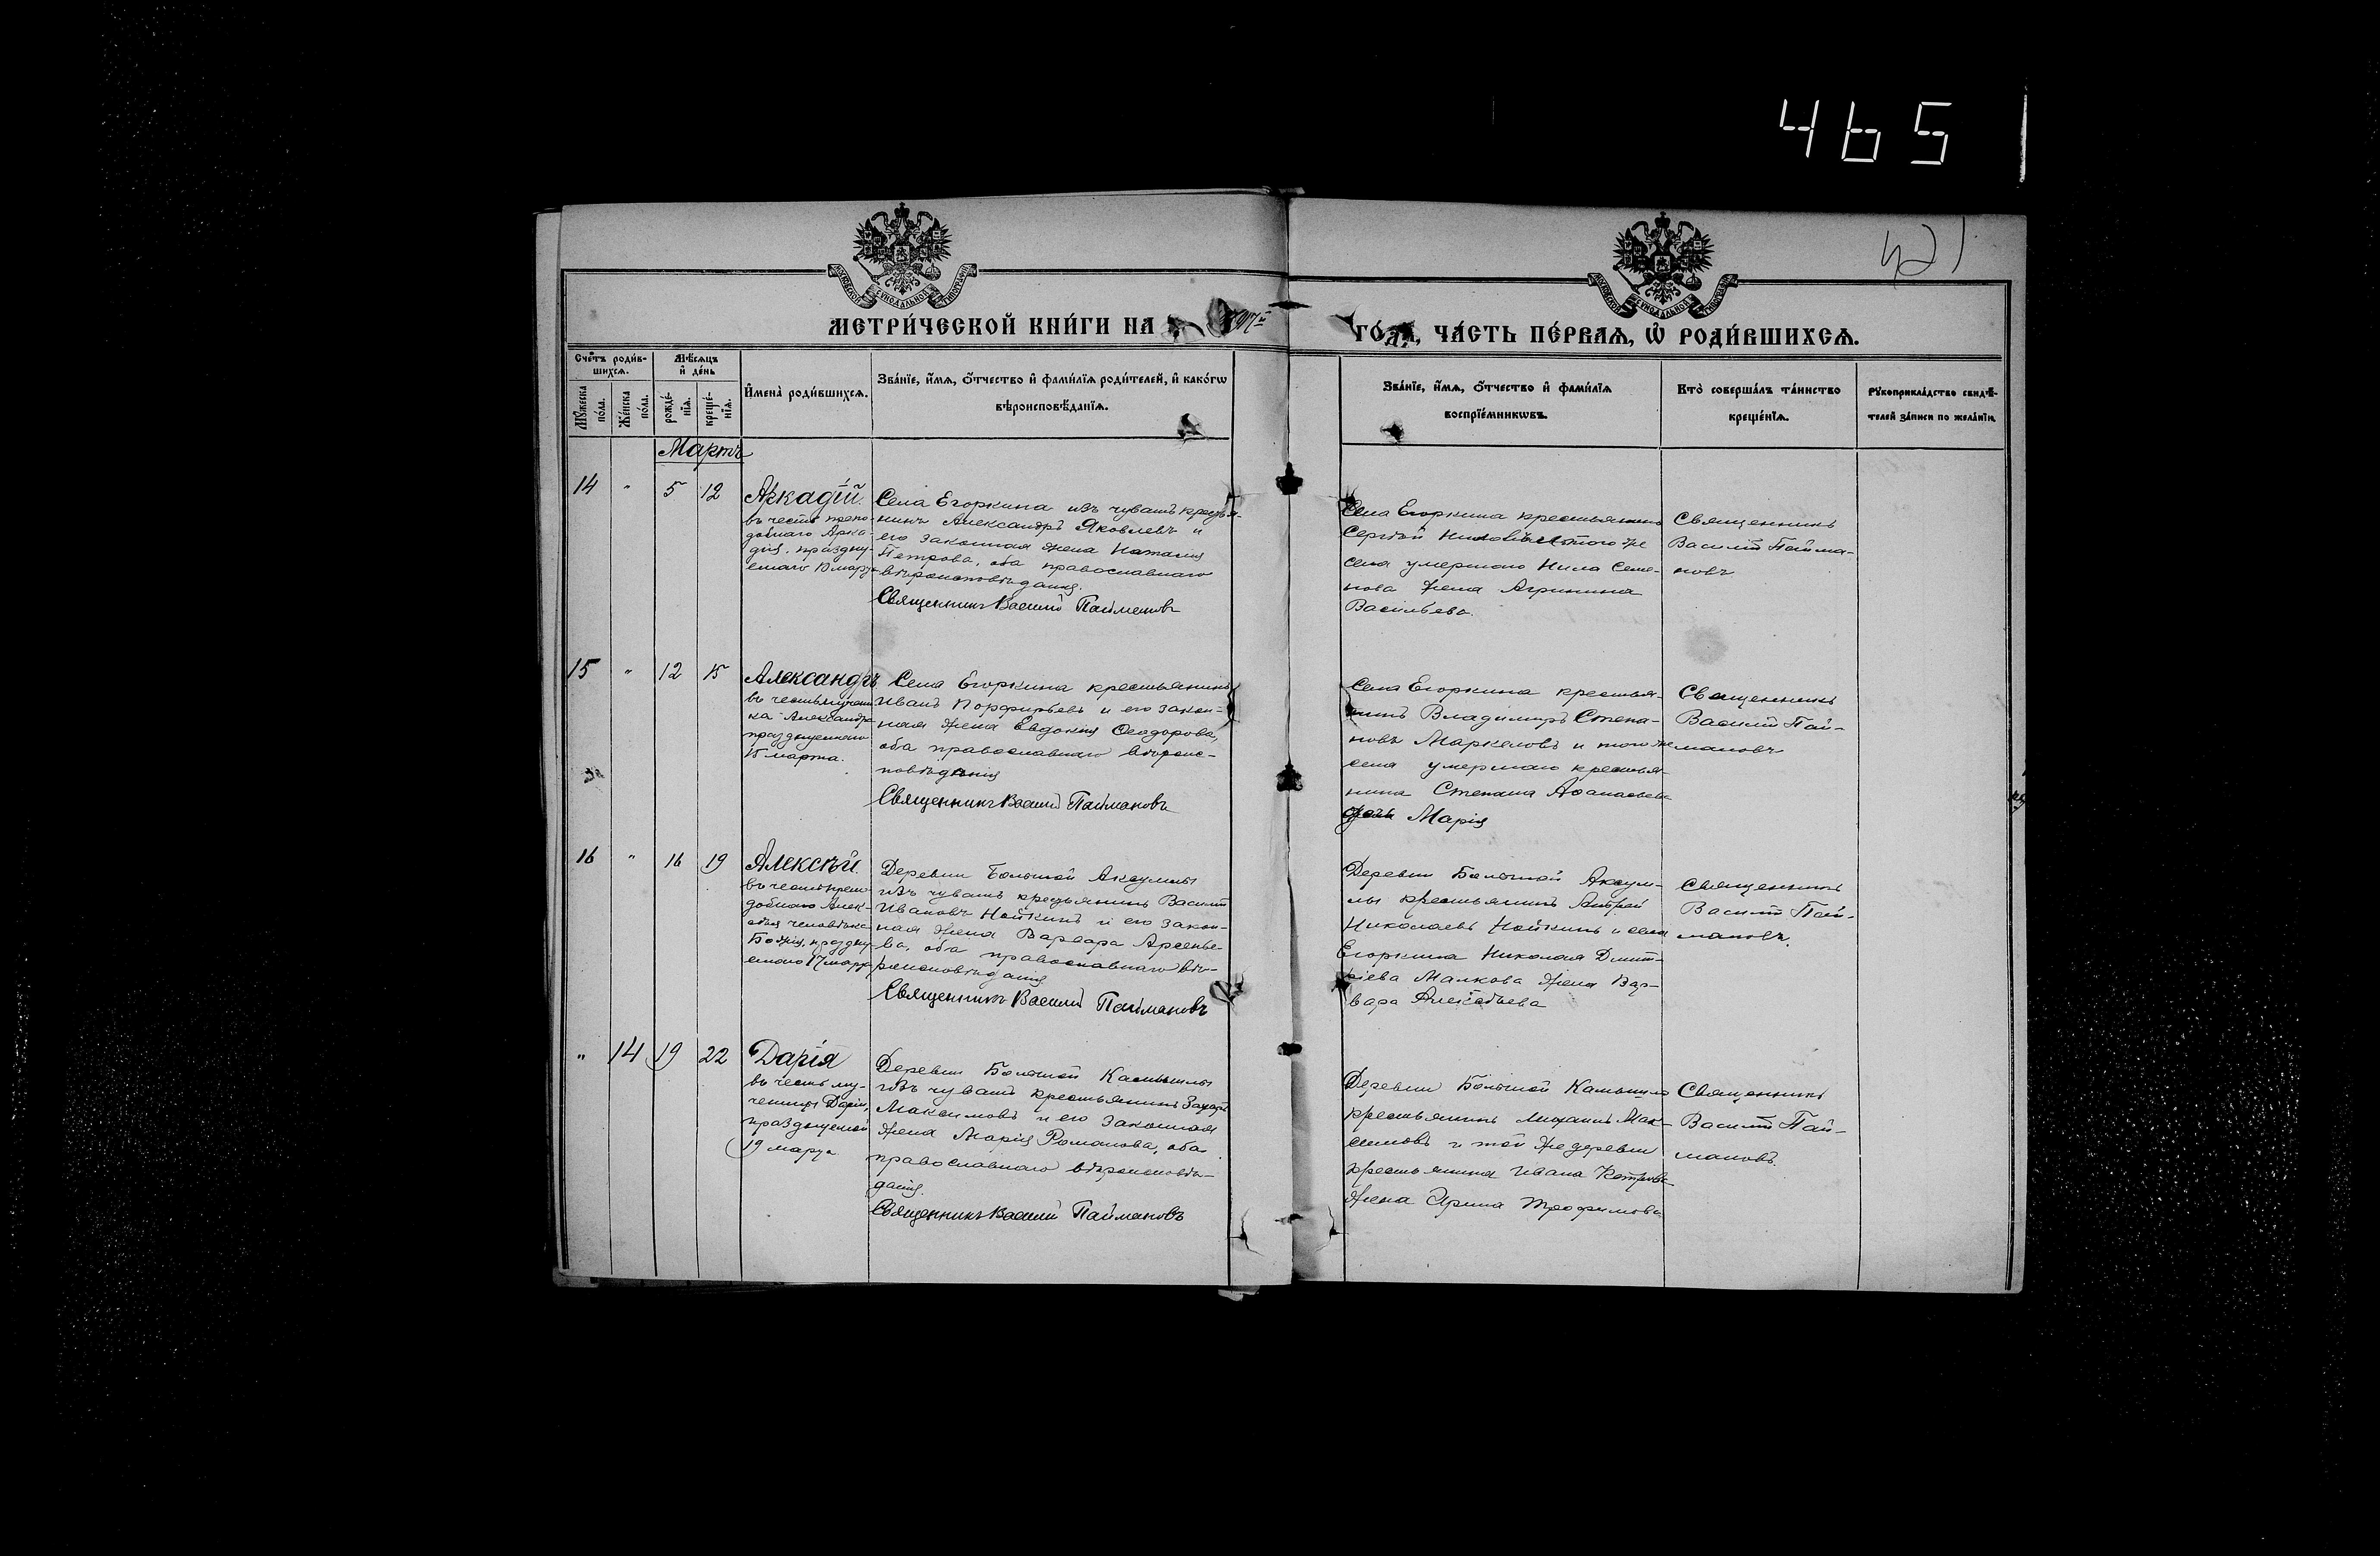 465
421
МОСКОВСКОЙ СѴНОДАЛЬНОЙ ТИПОГРАФІИ
МОСКОВСКОЙ СѴНОДАЛЬНОЙ ТИПОГРАФІИ
МЕТРИ́ЧЕСКОЙ КНИ́ГИ НА 1897й
ГО́ДА, ЧА́СТЬ ПЕ́РВАѦ, Ѡ҆ РОДИ́ВШИХСѦ.
Сче́тъ роди́в-
шихсѧ.
Мѣ́сѧцъ
и҆ де́нь
Мꙋ́жеска
по́ла.
Же́нска
по́ла.
рожде́-
нїѧ.
креще́-
нїѧ.
И҆мена̀ роди́вшихсѧ.
Зва́нїе, и҆́мѧ, ѻ҆́тчество и҆ фами́лїѧ роди́телей, и҆ како́гѡ
вѣроисповѣ́данїѧ.
Зва́нїе, и҆́мѧ, ѻ҆́тчество и҆ фами́лїѧ
воспрїе́мникѡвъ.
Кто̀ соверша́лъ та́инство
креще́нїѧ.
Рꙋкоприкла́дство свидѣ́-
телей за́писи по жела́нїю.
Мартъ
14 " 5 12
Аркадій.
въ честь препо-
добнаго Арка-
дія, праздну-
емаго
Села Егоркина изъ чувашъ крестья-
нинъ Александръ Яковлевъ и
его законная жена Наталія
Петрова, оба православнаго
вѣроисповѣданія.
Священникъ Василій Паймановъ
Села Егоркина крестьянинъ
Сергѣй и того же
села умершаго Нила Семе-
нова жена Агрипина
Васильева.
Священникъ
Василій Пайма-
новъ
15 " 12 15
Александръ
въ честь мучени-
ка Александра
празднуемаго
15 марта.
Села Егоркина крестьянинъ
Иванъ Порфирьевъ и его закон-
ная жена Евдокія Ѳеодорова,
оба православнаго вѣроис-
повѣданія
Священникъ Василій Паймановъ
Села Егоркина крестья-
нинъ Владиміръ Степа-
новъ Маркеловъ и того же
села умершаго крестья-
нина Степана Аѳанасьева
дочь Марія
Священникъ
Василій Пай-
мановъ
16 " 16 19
Алексѣй.
въ честь препо-
добнаго Алек-
сѣя человѣка
Божія, праздну-
емаго 17 марта
Деревни Большой Аксумлы
изъ чувашъ крестьянинъ Василій
Ивановъ Нойкинъ и его закон-
ная жена Варвара Арсенье-
ва, оба православнаго вѣ-
роисповѣданія
Священникъ Василій Паймановъ
Деревни Большой Аксум-
лы крестьянинъ Андрей
Николаевъ Нойкинъ и села
Егоркина Николая Дмит-
ріева Малкова жена Вар-
вара Алексѣева
Священникъ
Василій Пай-
мановъ.
" 14 19 22
Дарія
въ честь му-
ченицы Даріи,
празднуемой
19 марта
Деревни Большой Камышлы
изъ чувашъ крестьянинъ Захаръ
Максимовъ и его законная
жена Марія Романова, оба
православнаго вѣроисповѣ-
данія.
Священникъ Василій Паймановъ
Деревни Большой Камышла
крестьянинъ Михаилъ Мак-
симовъ и той же деревни
крестьянина Ивана Петрова
жена Ирина Трофимова
Священникъ
Василій Пай-
мановъ.